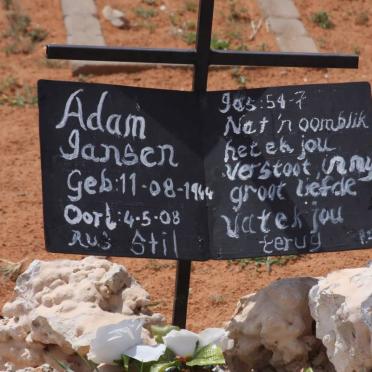 Adam
Jansen
Geb:11-08-1944
Oorl:4-5-08
Rus Stil
Jas:54-7
Net 'n oomblik
het ek jou
verstoot, in my
groot liefde
Vat ek jou
terug